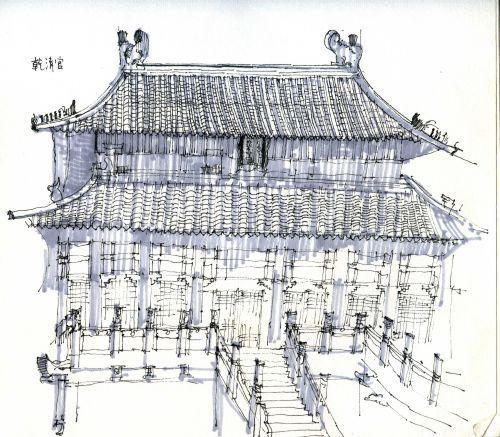 乾清宫